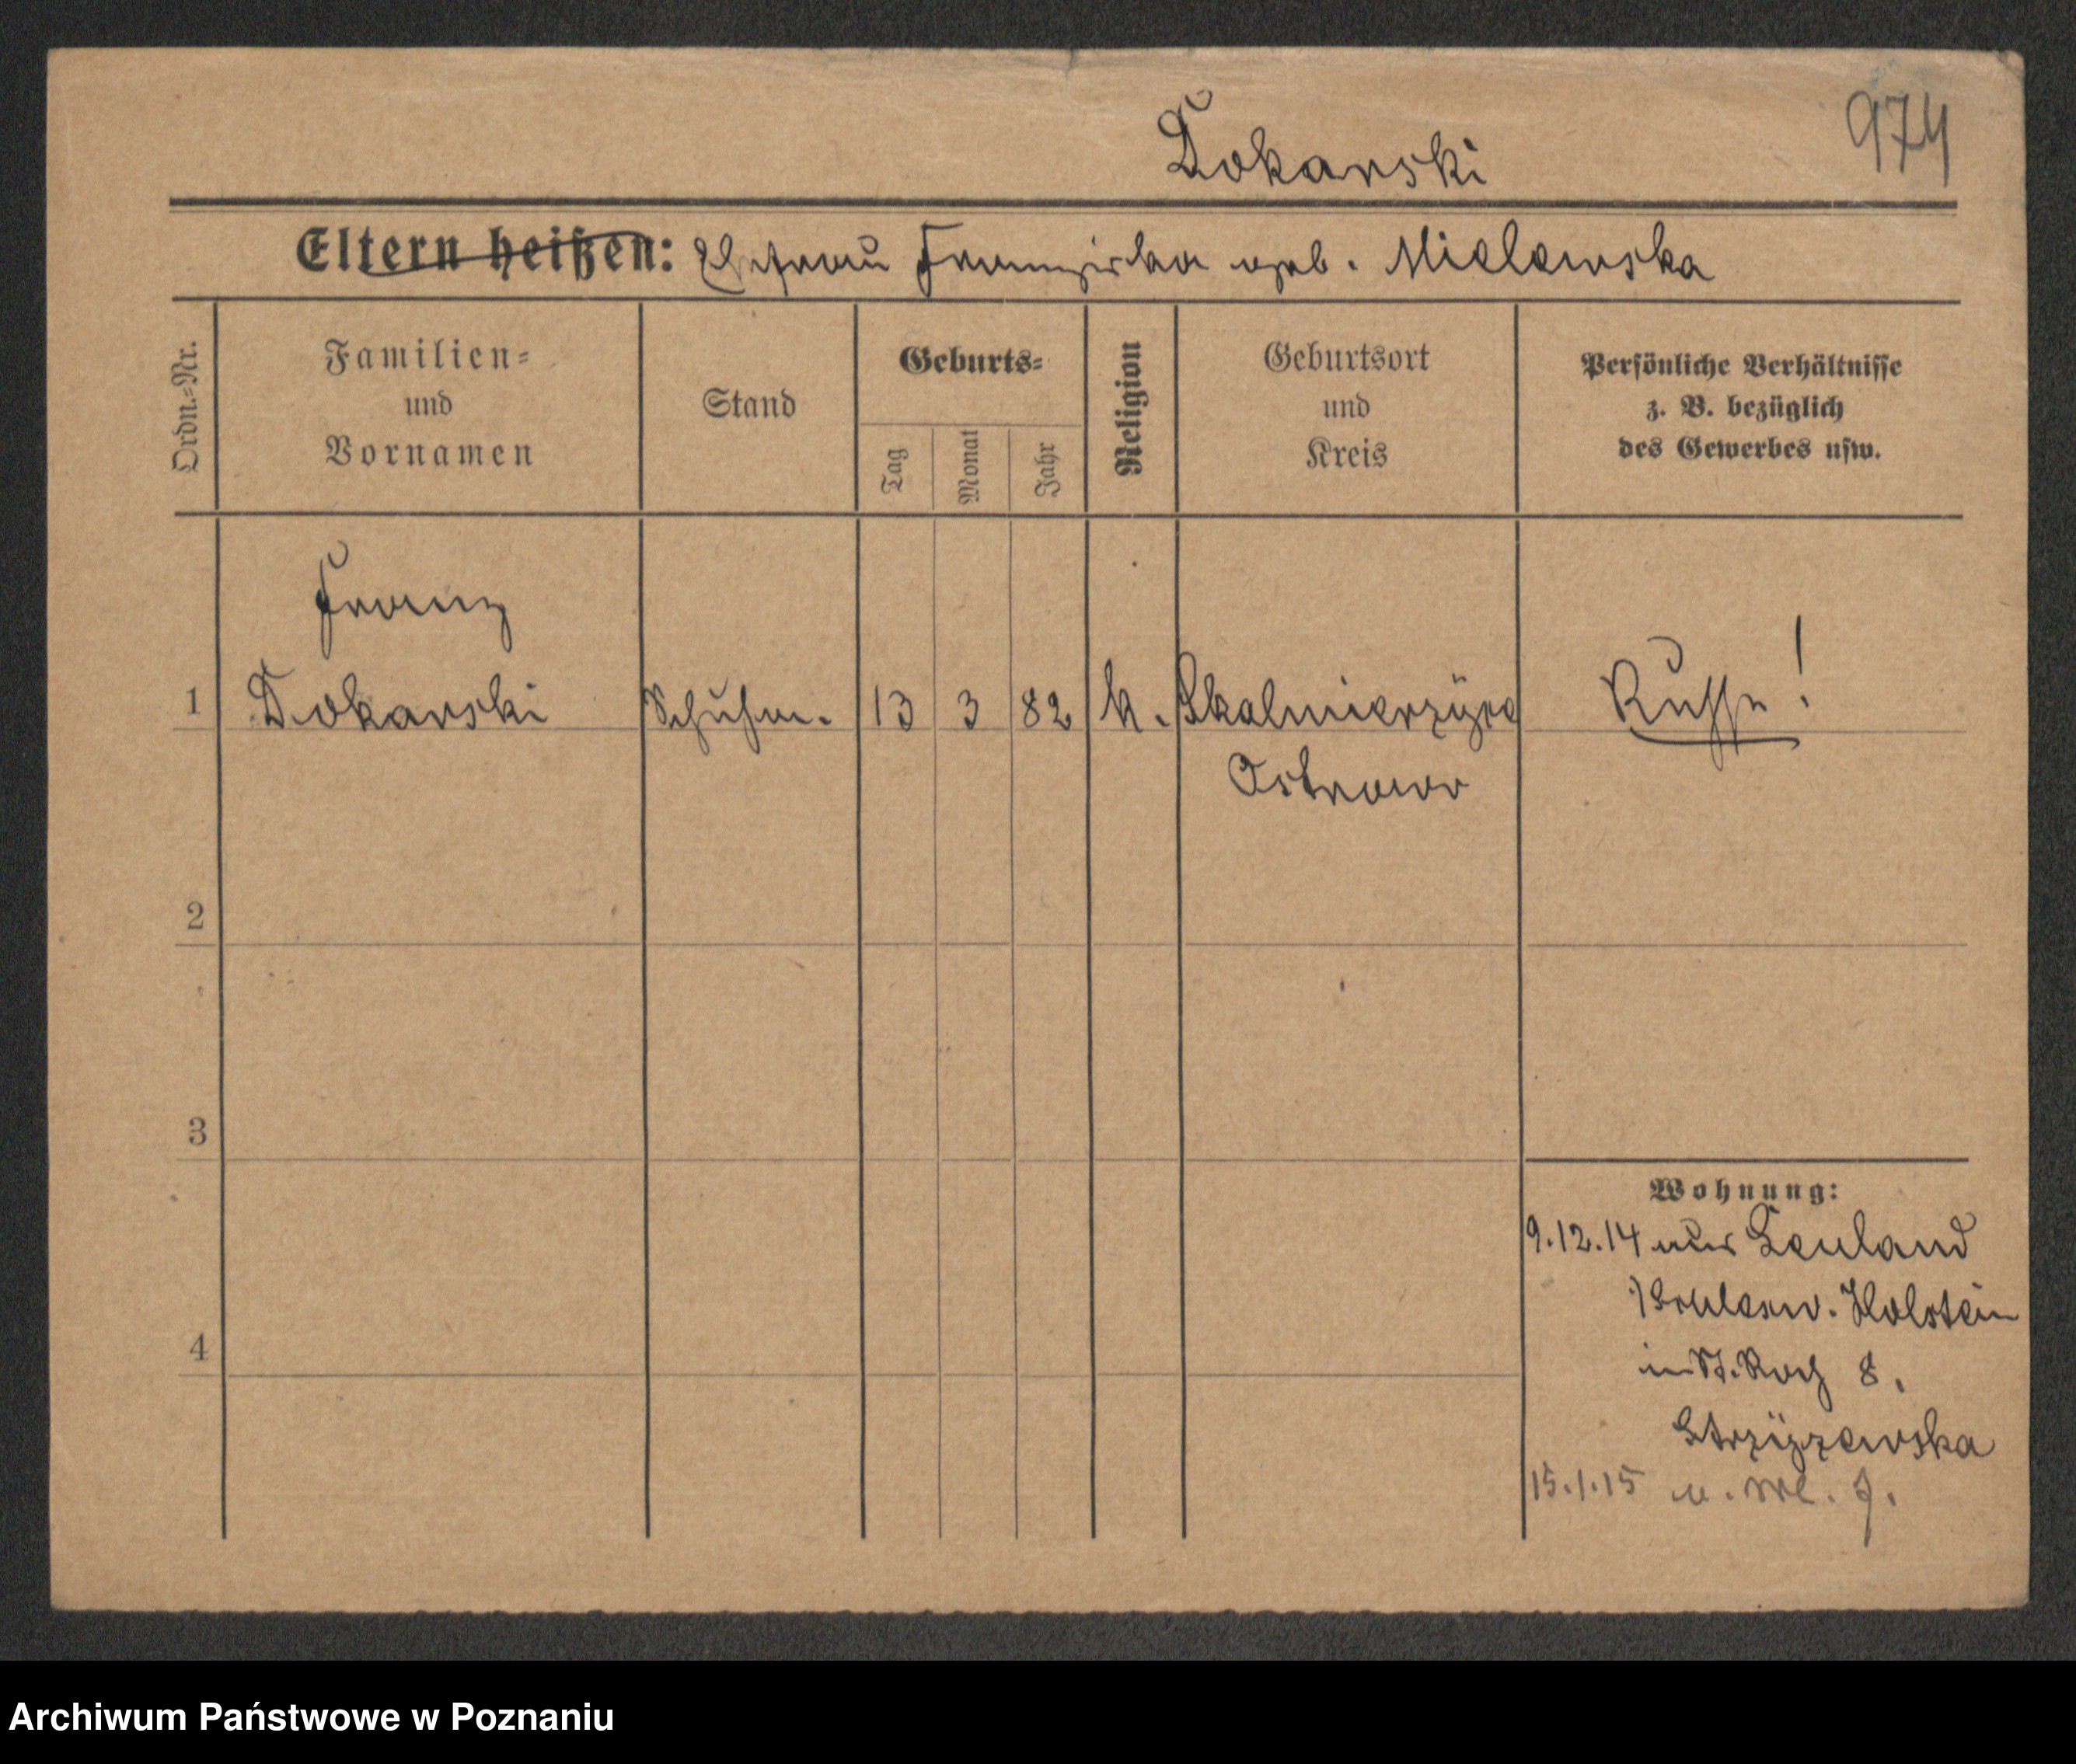 974
Dokanski
Eltern heißen: Ehefrau Franziska geb. Mielewska
Ordn.=Nr.
Familien=
und
Vornamen
Stand
Geburts=
Tag
Monat
Jahr
Religion
Geburtsort
und
Kreis
Persönliche Verhältnisse
z. B. bezüglich
des Gewerbes usw.
Franz
1 Dokanski Schuhm. 13 3 82 k. Skalmierzÿce Russe!
Ostrowo
2
3
4
Wohnung:
9.12.14 aus Lenland
Schlesw. Holstein
in St. Roch 8.
Strzÿzewska
15.1.15 u.
Archiwum Państwowe w Poznaniu